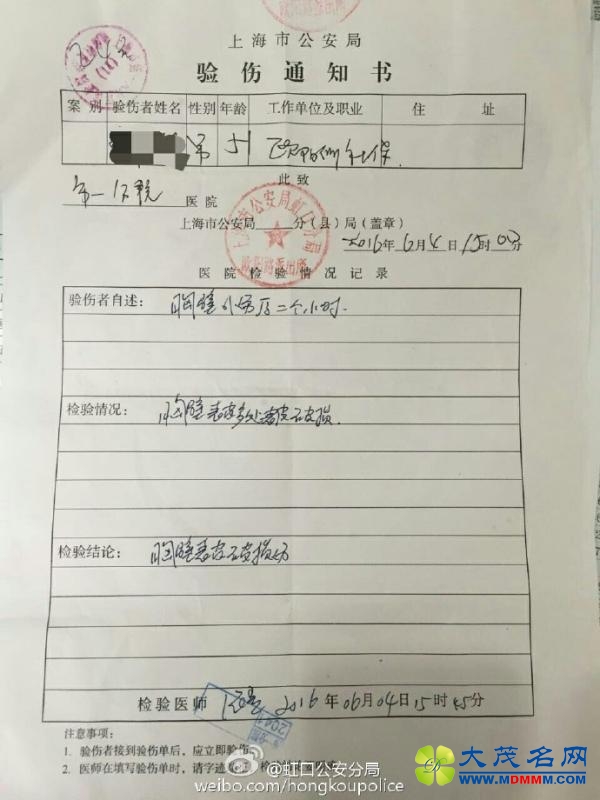 上海市公安局
验伤通知书
案别 验伤者姓名 性别 年龄 工作单位及职业 住址
51
此致
第一人民 医院
上海市公安局 分(县)局(盖章)
上海市公安局虹口分局
2016年6月4日15时03分
医院检验情况记录
验伤者自述: 胸壁外伤后二个小时.
检验情况: 胸壁表皮多处表皮破损.
检验结论: 胸壁表皮破损伤
检验医师 2016年06月04日15时45分
注意事项:
1. 验伤者接到验伤单后,应立即验伤
2. 医师在填写验伤单时,请字迹
@虹口公安分局
weibo.com/hongkoupolice
大茂名网
www.MDMMM.com